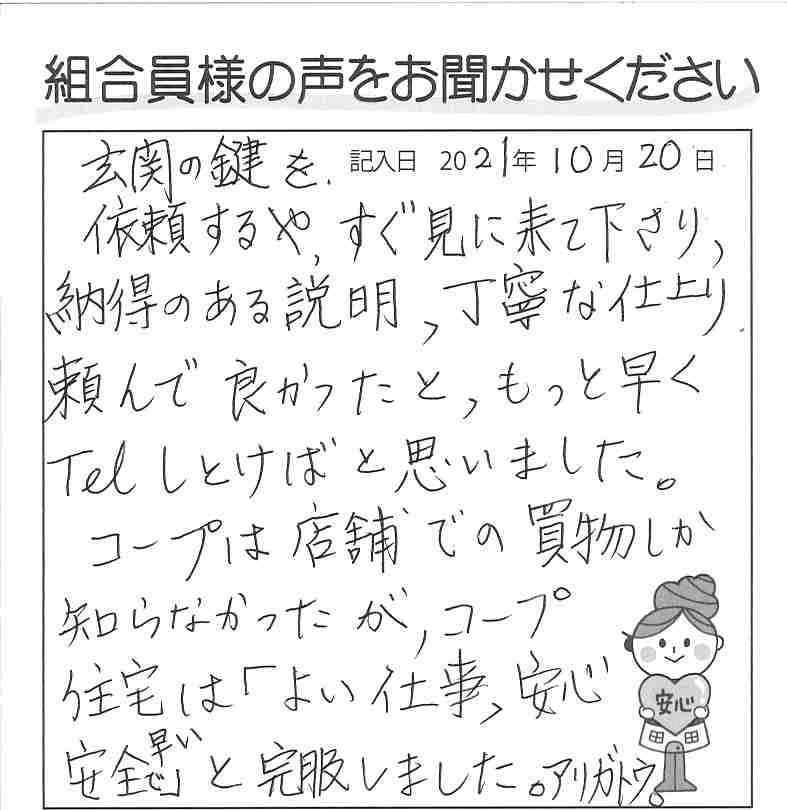 組合員様の声をお聞かせください
記入日 2021年10月20日
玄関の鍵を、
依頼するや、すぐ見に来て下さり、
納得のある説明、丁寧な仕上り
頼んで良かったと、もっと早く
Telしとけばと思いました。
コープは店舗での買物しか
知らなかったが、コープ
住宅は「よい仕事、安心
安全早いで」と完服しました。アリガトウ。
安心